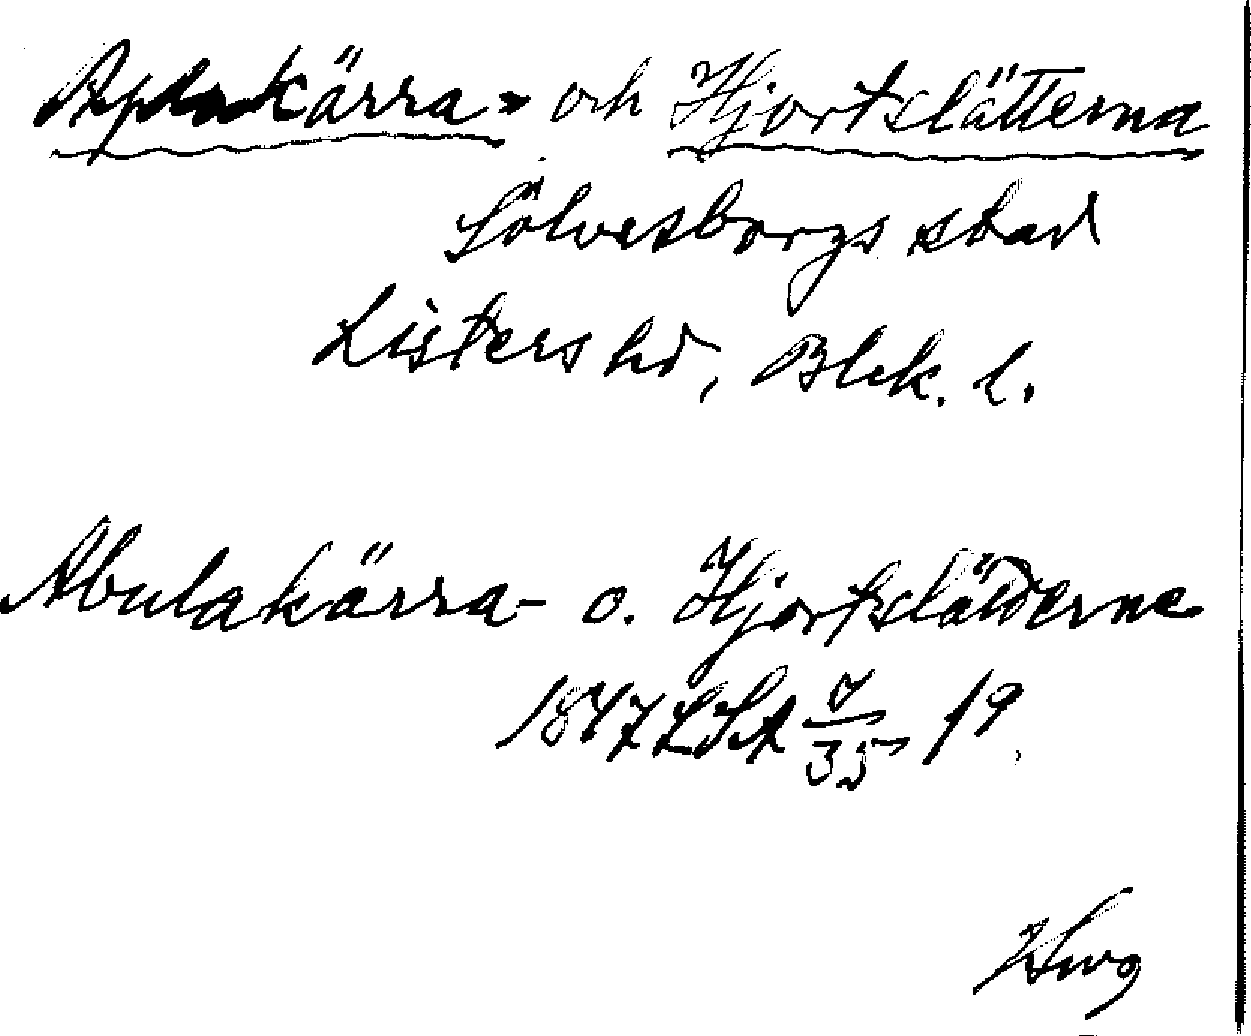 Aplakärra- och Hjortslätterna
Sölvesborgs stad
Listers hd, Blek. l.
Abulakärra- o. Hjortslädderne
1847 LSA 7/35 f9.